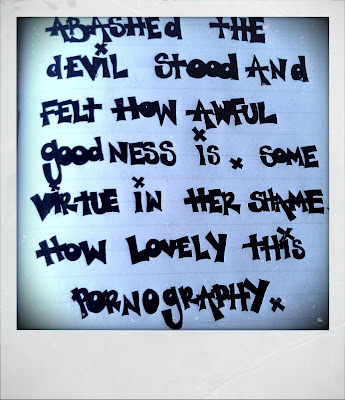 ABASHED THE
dEVIL STOOD AND
FELT HOW AWFUL
goodNESS iS. SOME
ViRTUE iN HER SHAME
HOW LOVELY THiS
PORNOGRAPHY.